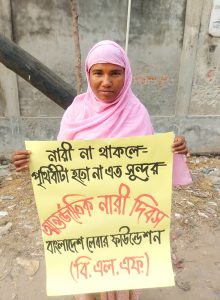 নারী না থাকলে-
পৃথিবীটা হতো না এত সুন্দর
আন্তর্জাতিক নারী দিবস
বাংলাদেশ লেবার ফাউন্ডেশন
(বি.এল.এফ)